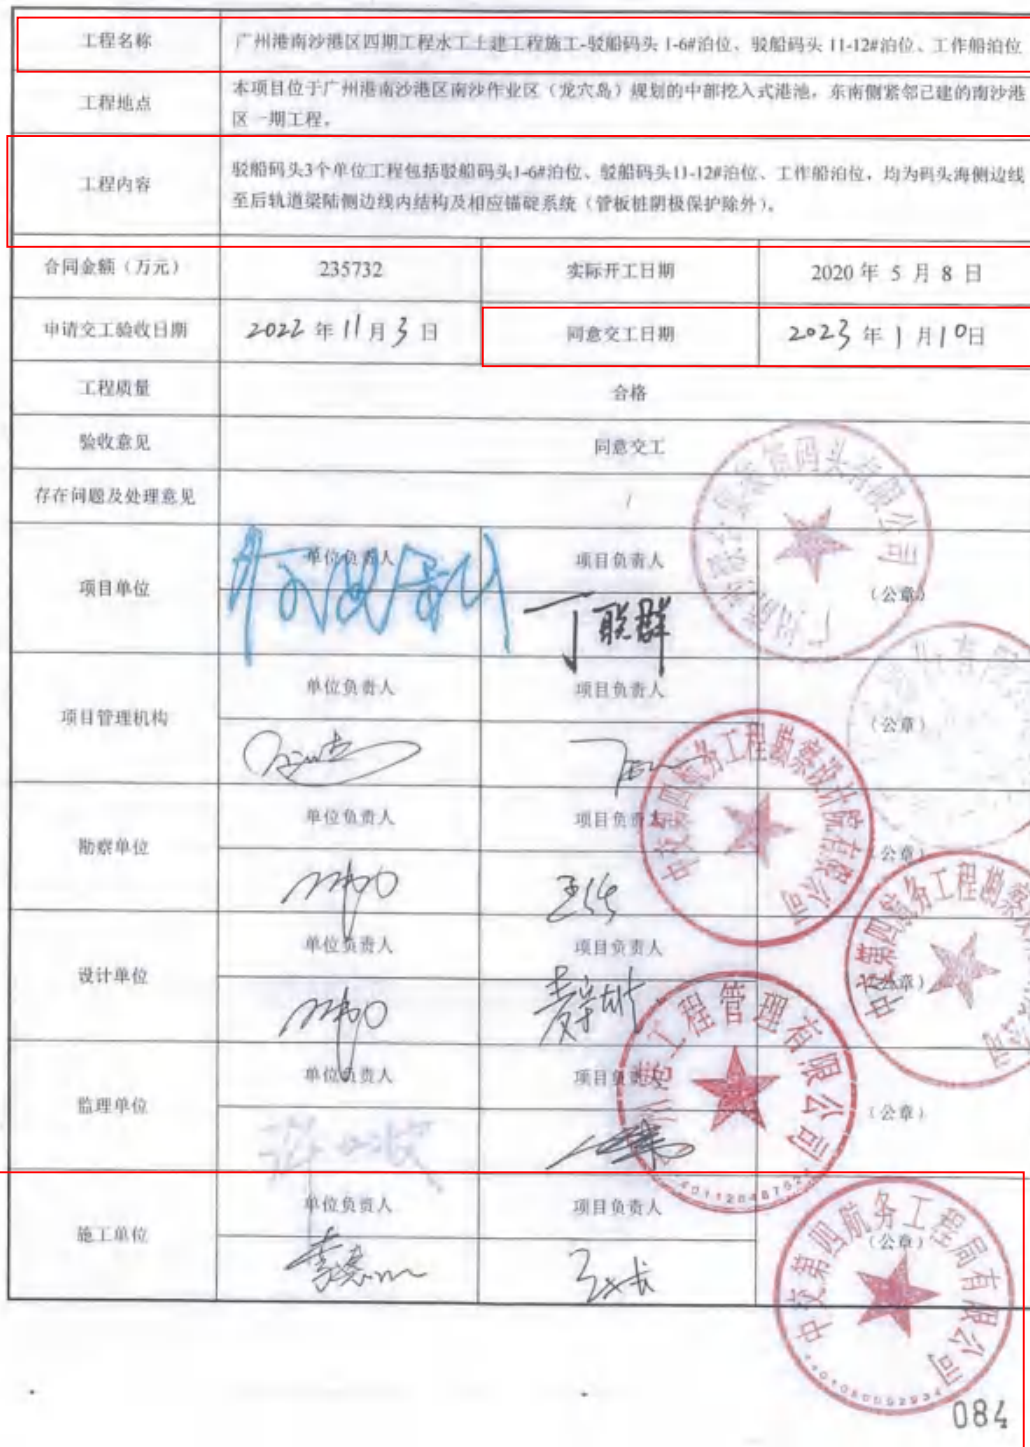 工程名称
广州港南沙港区四期工程水工土建工程施工-驳船码头 1-6#泊位、驳船码头 11-12#泊位、工作船泊位
工程地点
本项目位于广州港南沙港区南沙作业区（龙穴岛）规划的中部挖入式港池，东南侧紧邻已建的南沙港
区一期工程。
工程内容
驳船码头3个单位工程包括驳船码头1-6#泊位、驳船码头11-12#泊位、工作船泊位，均为码头海侧边线
至后轨道梁陆侧边线内结构及相应锚碇系统（管板桩阴极保护除外）。
合同金额（万元） 235732 实际开工日期 2020 年 5 月 8 日
申请交工验收日期 2022 年 11 月 3 日 同意交工日期 2023 年 1 月 10 日
工程质量 合格
验收意见 同意交工
存在问题及处理意见 /
项目单位 单位负责人 项目负责人 （公章）
丁联群
项目管理机构 单位负责人 项目负责人 （公章）
勘察单位 单位负责人 项目负责人 （公章）
中交第四航务工程勘察设计院有限公司
设计单位 单位负责人 项目负责人 （公章）
中交第四航务工程勘察
监理单位 单位负责人 项目负责人 （公章）
工程管理有限公司
施工单位 单位负责人 项目负责人 （公章）
中交第四航务工程局有限公司
084